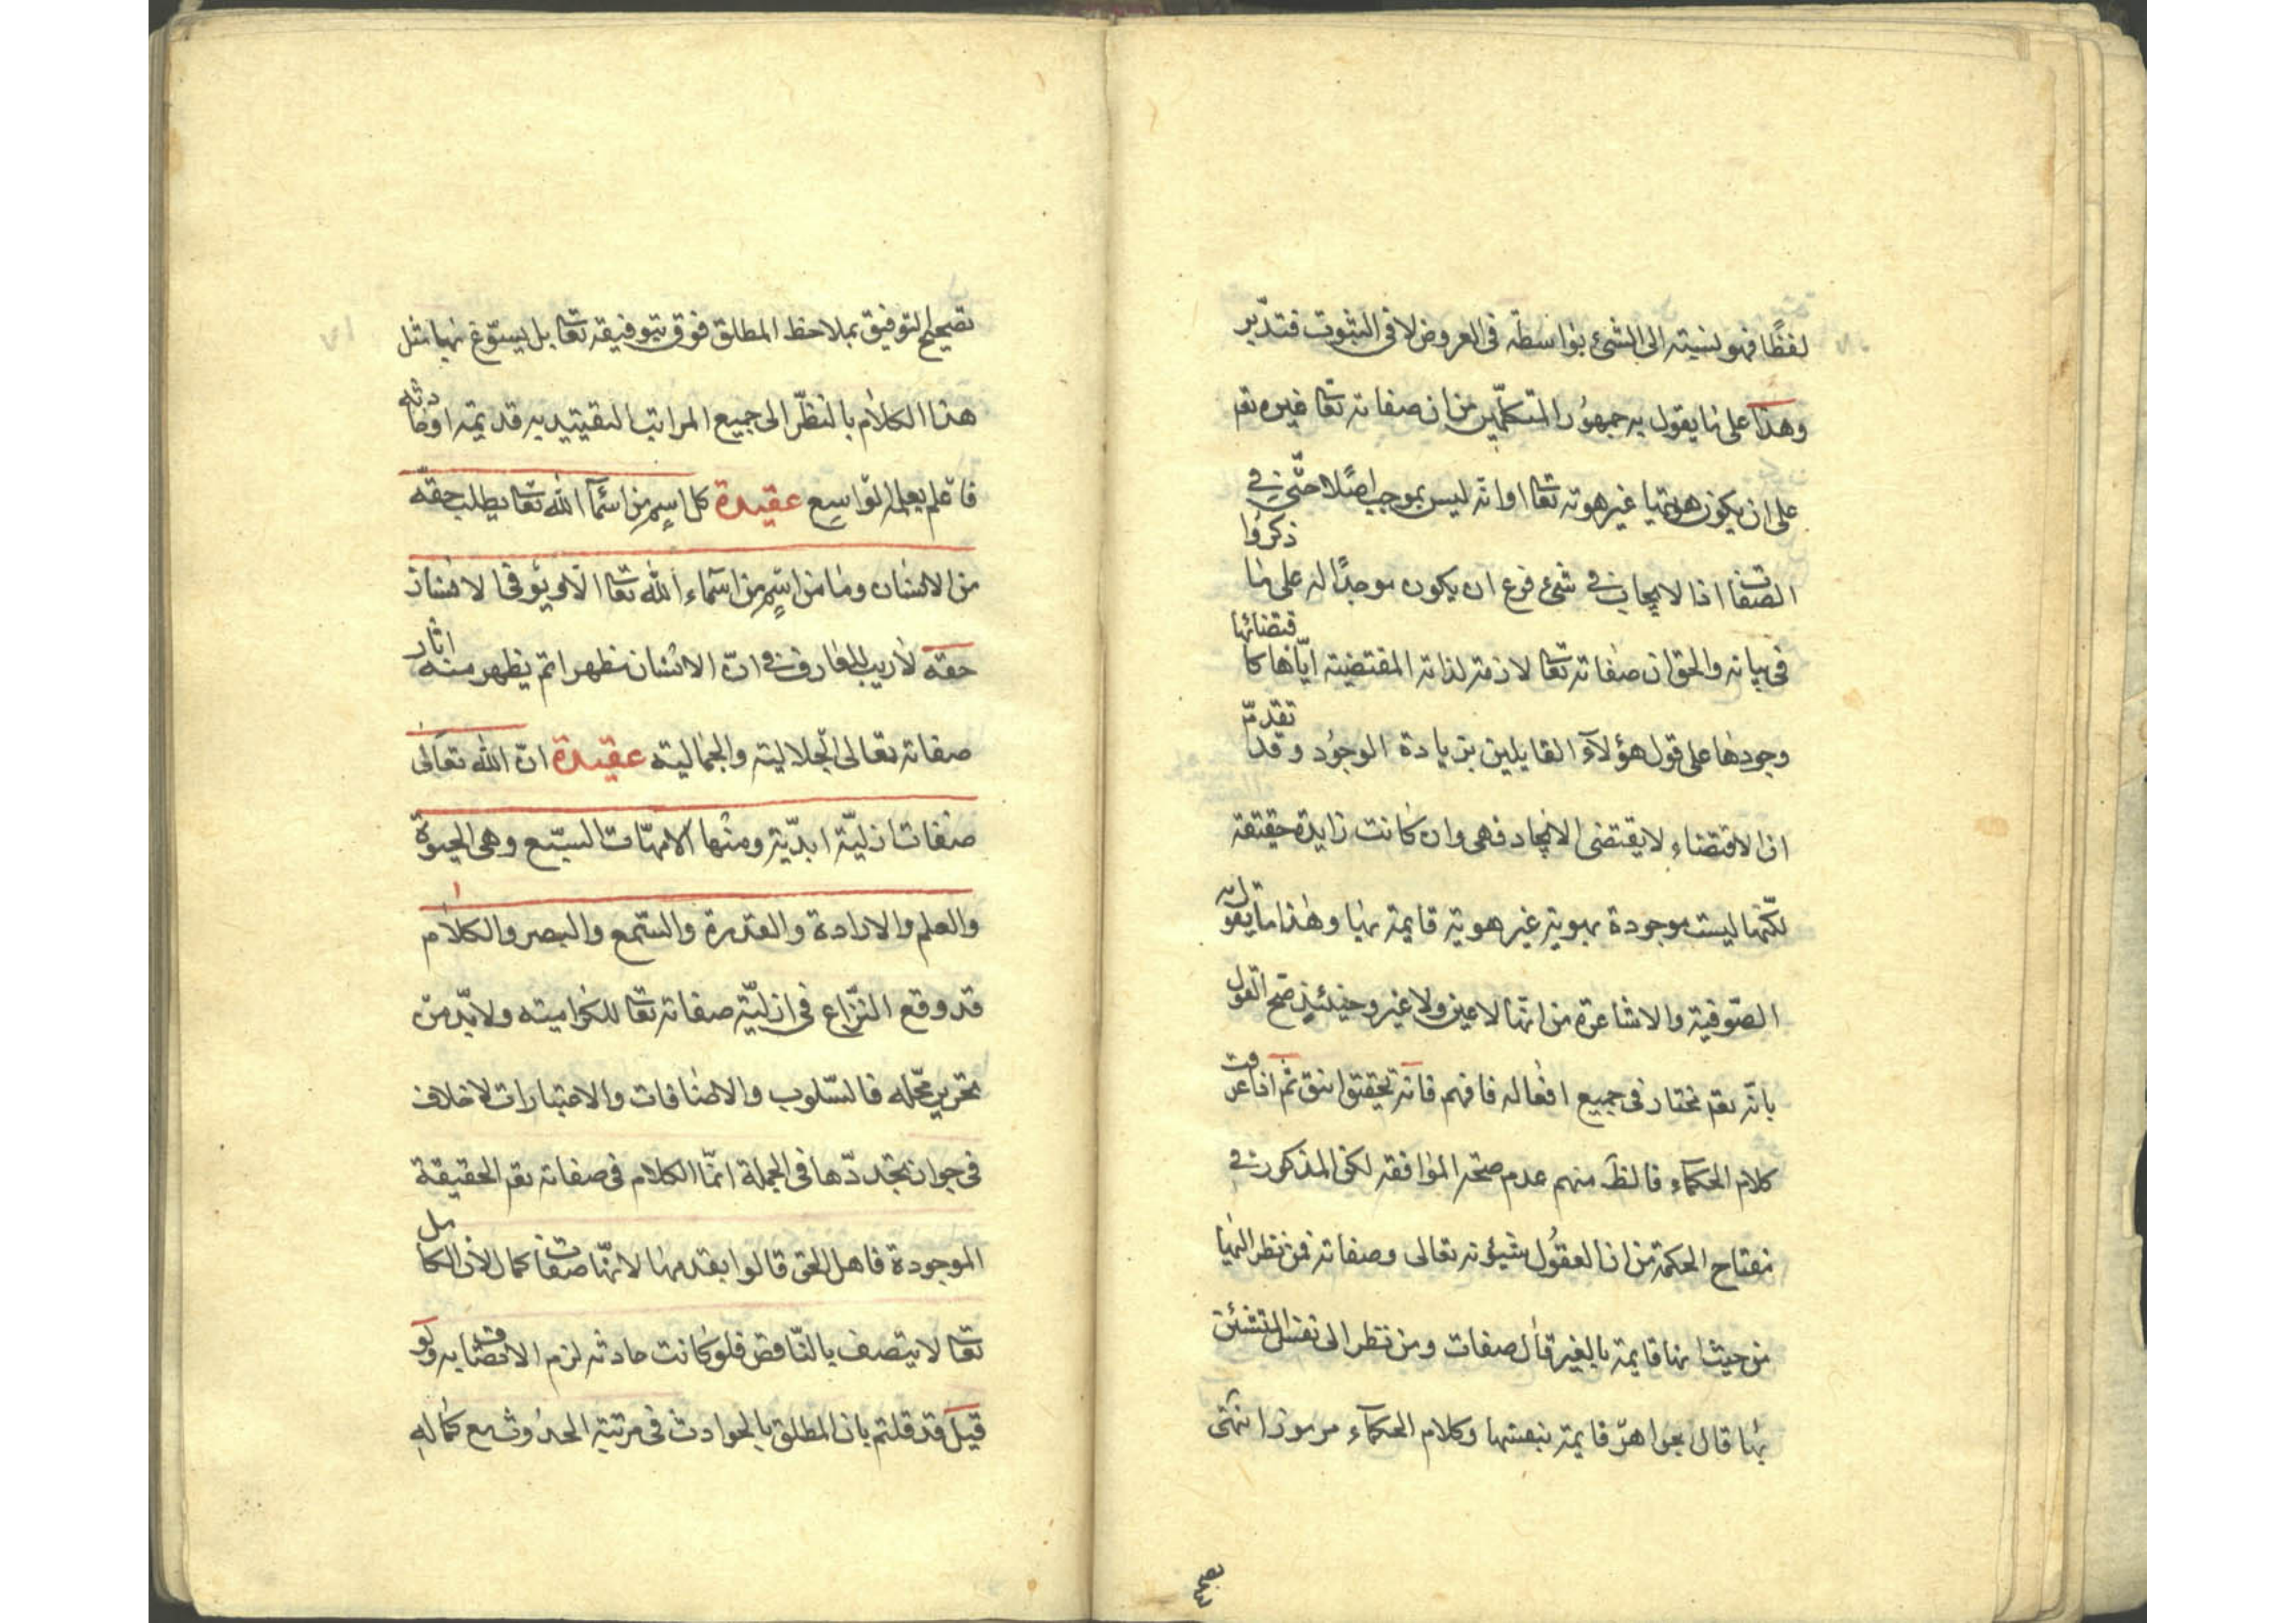 لفظًا فهو لنسبته الى الشئ بواسطة فى العروض لا فى الثبوت فتدبر
وهذا على ما يقول به جمهور المتكلمين من ان صفاته تعا غيره تع
على ان يكون هويتها غير هوته تعا او انه ليس بموجب اصلا حتى فى
الصفات اذ الايجاب فى شئ فرع ان يكون موجدًا له على ما ذكروا
فى بيانه والحق ان صفاته تعا لازمة لذاته المقتضية اياها كاقتضائها
وجودها على قول هؤلاء القايلين بزيادة الوجود وقد تقدم
ان الاقتضاء لا يقتضى الايجاد فهى وان كانت زايدة حقيقة
لكنها ليست بموجودة بهوية غير هوية قايمة بها وهذا ما يقول به
الصوفية والاشاعرة من انها لا عين ولا غير وحينئذ صح القول
بانه تع مختار فى جميع افعاله فافهم فانه تحقيق انيق ثم اذا عرفت
كلام الحكماء فالظ منهم عدم صحة الموافقة لكن المذكور فى
مفتاح الحكمة من ان العقول شيئونه تعالى وصفاته فمن نظر اليها
من حيث انها قايمة بالغير قال صفات ومن نظر الى نفس
بها قال بجواهر قايمة بنفسها وكلام الحكماء مرموز انتهى
تصحيح التوفيق بملاحظ المطلق فوق بتوفيقه تعا بل يستوغ بها مثل
هذا الكلام بالنظر الى جميع المراتب التقييديه قديمة او حادثه
فاعلم بعلمه الواسع عقيدة كل اسم من اسماء الله تعا يطلب حقه
من الانسان وما من اسم من اسماء الله تعا الا ويؤفى الانسان
حقه لا ريب للعارف فى ان الانسان مظهر اتم يظهر منه اثار
صفاته تعالى الجلالية والجمالية عقيدة ان الله تعالى
صفات ازلية ابدية ومنها الامهات السبع وهى الحيوة
والعلم والارادة والقدرة والسمع والبصر والكلام
قد وقع النزاع فى ازلية صفاته تعا للكرامية ولا بد من
تحرير محله فالسلوب والاضافات والاعتبارات لا خلاف
فى جواز تجددها فى الجملة انما الكلام فى صفاته تع الحقيقة
الموجودة فاهل الحق قالوا بقدمها لانها صفات كمال لان الكامل
تعا لا يتصف بالناقص فلو كانت حادثه لزم الاتصاف به ولو
قيل قد قلتم بان المطلق بالحوادث فى مرتبة الحدوث مع كماله